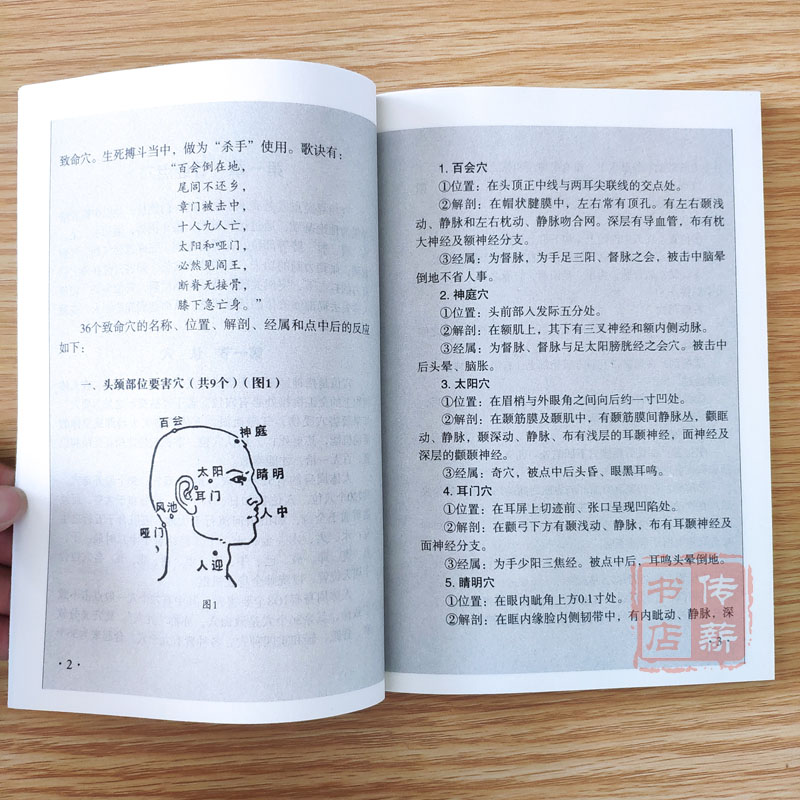 致命穴。生死搏斗当中，做为“杀手”使用。歌诀有：
“百会倒在地，
尾闾不还乡，
章门被击中，
十人九人亡，
太阳和哑门，
必然见阎王，
断脊无接骨，
膝下急亡身。”
36个致命穴的名称、位置、解剖、经属和点中后的反应
如下：
一、头颈部位要害穴（共9个）（图1）
百会
神庭
太阳
睛明
耳门
风池
人中
哑门
人迎
图1
·2·
1. 百会穴
①位置：在头顶正中线与两耳尖联线的交点处。
②解剖：在帽状腱膜中，左右常有顶孔。有左右颞浅
动、静脉和左右枕动、静脉吻合网。深层有导血管，布有枕
大神经及额神经分支。
③经属：为督脉，为手足三阳、督脉之会，被击中脑晕
倒地不省人事。
2. 神庭穴
①位置：头前部人发际五分处。
②解剖：在额肌上，其下有三叉神经和额内侧动脉。
③经属：为督脉、督脉与足太阳膀胱经之会穴。被击中
后头晕、脑胀。
3. 太阳穴
①位置：在眉梢与外眼角之间向后约一寸凹处。
②解剖：在颞筋膜及颞肌中，有颞筋膜间静脉丛，颧眶
动、静脉，颞深动、静脉、布有浅层的耳颞神经，面神经及
深层的颧颞神经。
③经属：奇穴，被点中后头昏、眼黑耳鸣。
4. 耳门穴
①位置：在耳屏上切迹前、张口呈现凹陷处。
②解剖：在颧弓下方有颞浅动、静脉，布有耳颞神经及
面神经分支。
③经属：为手少阳三焦经。被点中后，耳鸣头晕倒地。
5. 睛明穴
①位置：在眼内眦角上方0.1寸处。
②解剖：在眶内缘脸内侧韧带中，有内眦动、静脉，深
·3·
传薪
书店